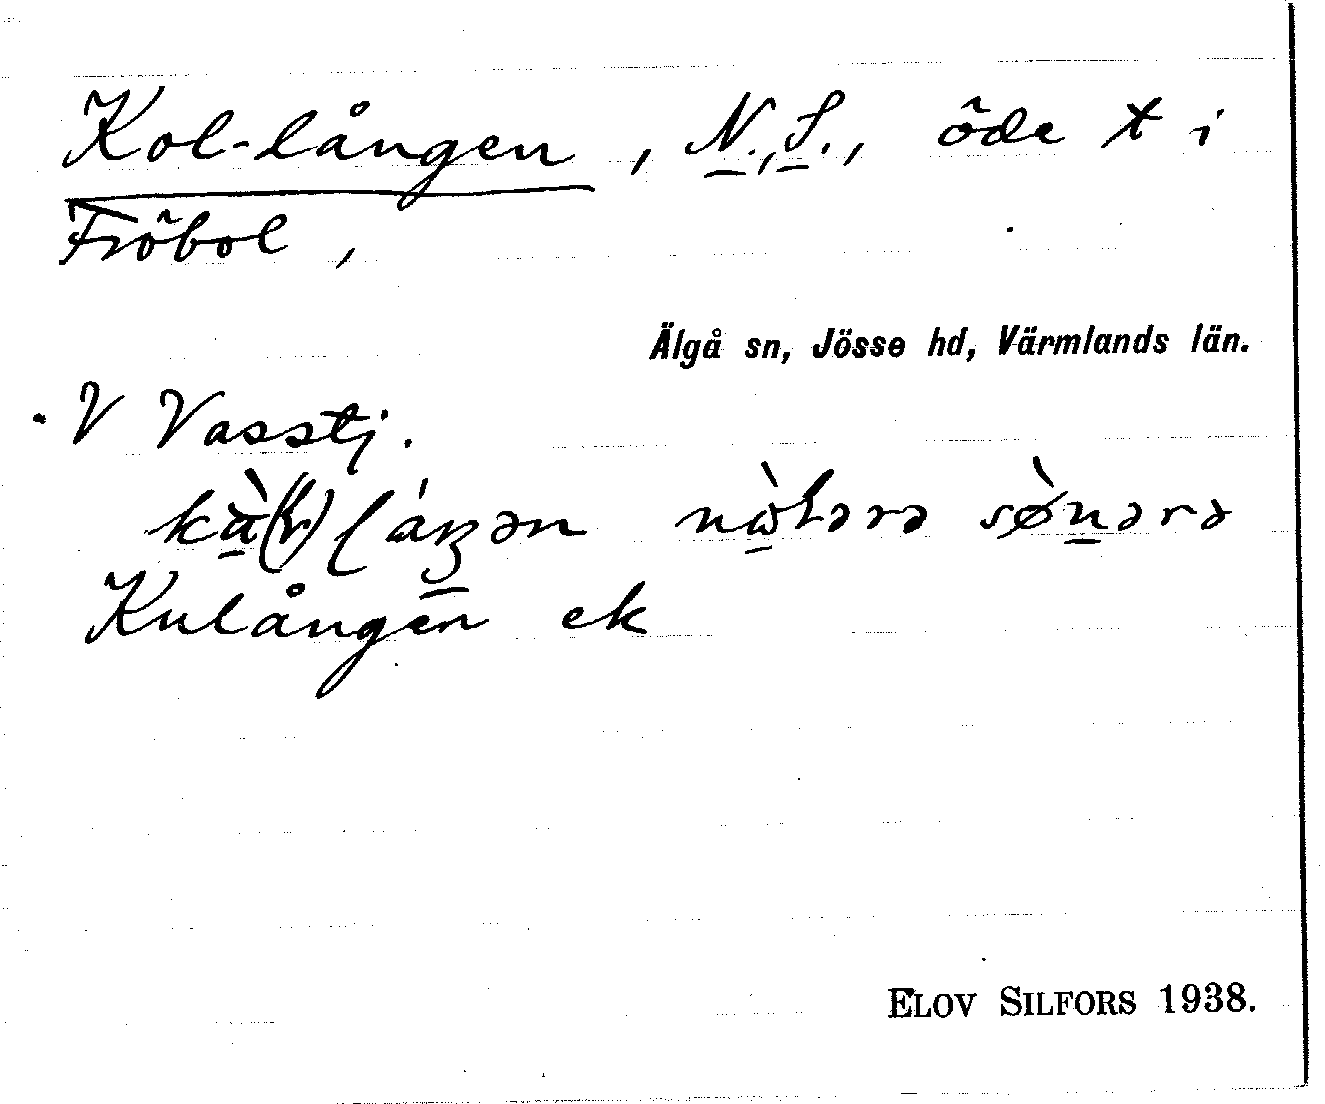 Kol-lången, N., S., öde t i
Fröbol,
Älgå sn, Jösse hd, Värmlands län.
V Vasstj.
Kulången ek
ELOV SILFORS 1938.